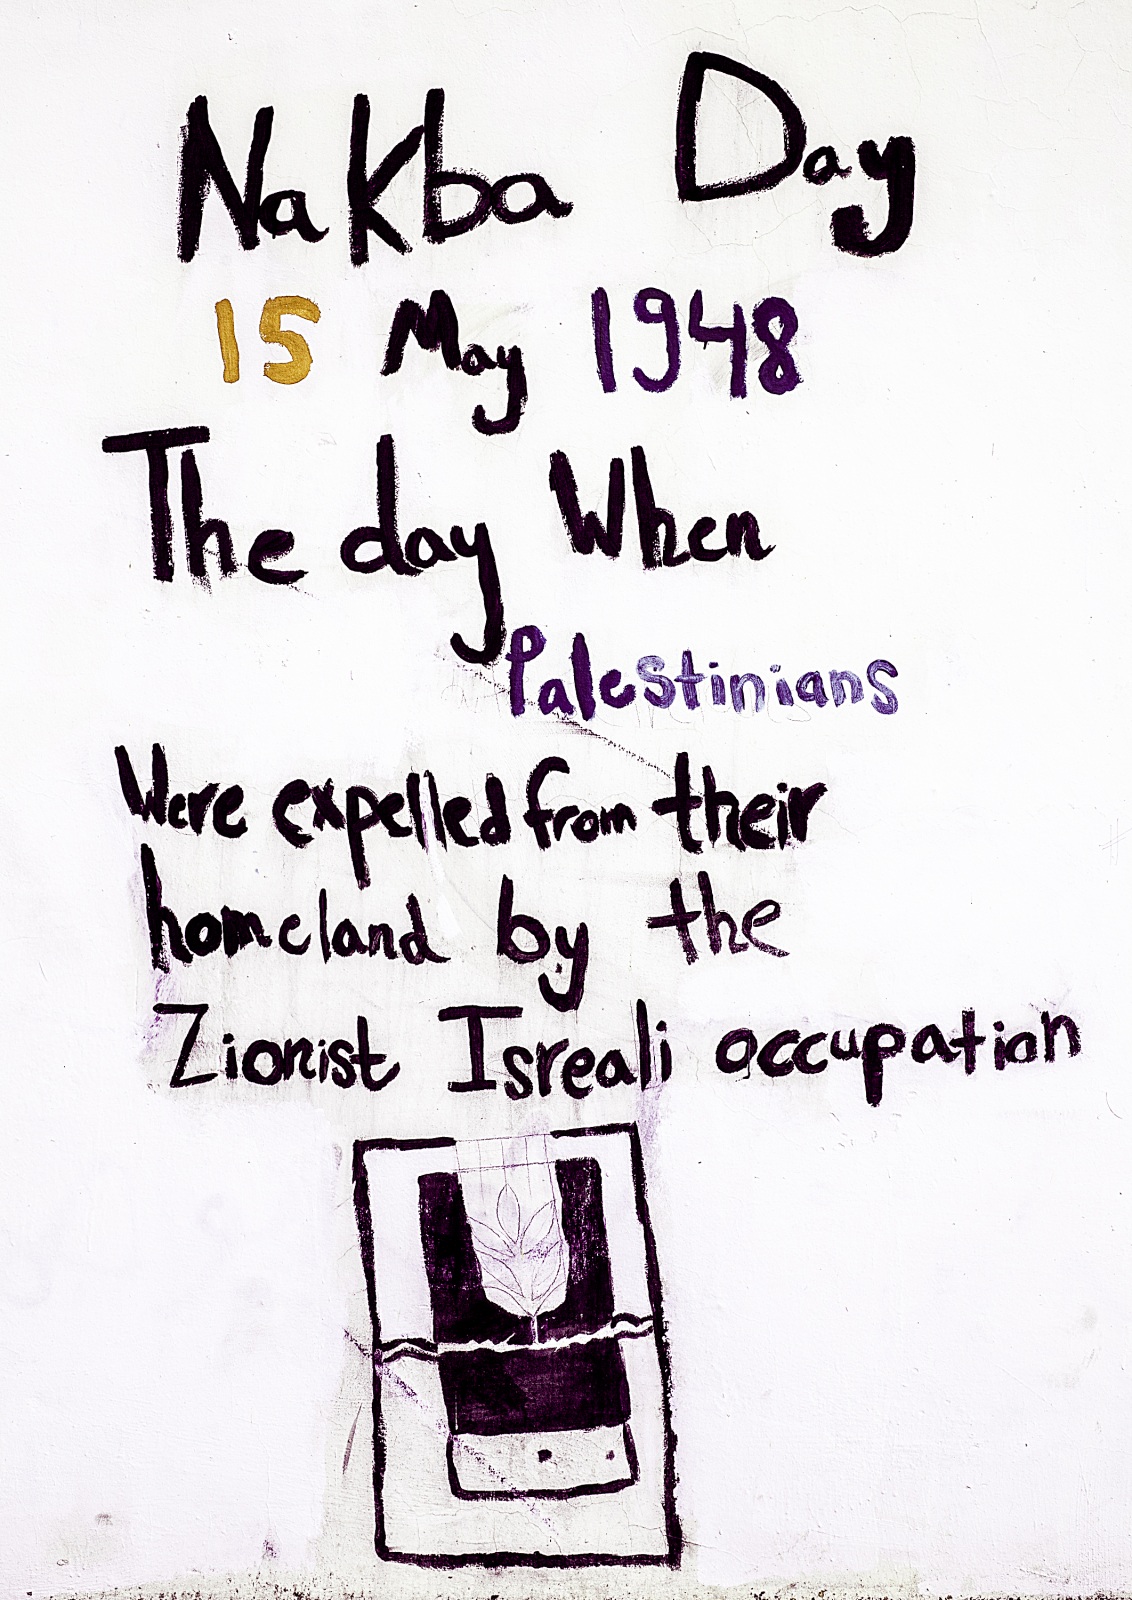 Nakba Day
15 May 1948
The day When
Palestinians
Were expelled from their
homeland by the
Zionist Isreali occupation